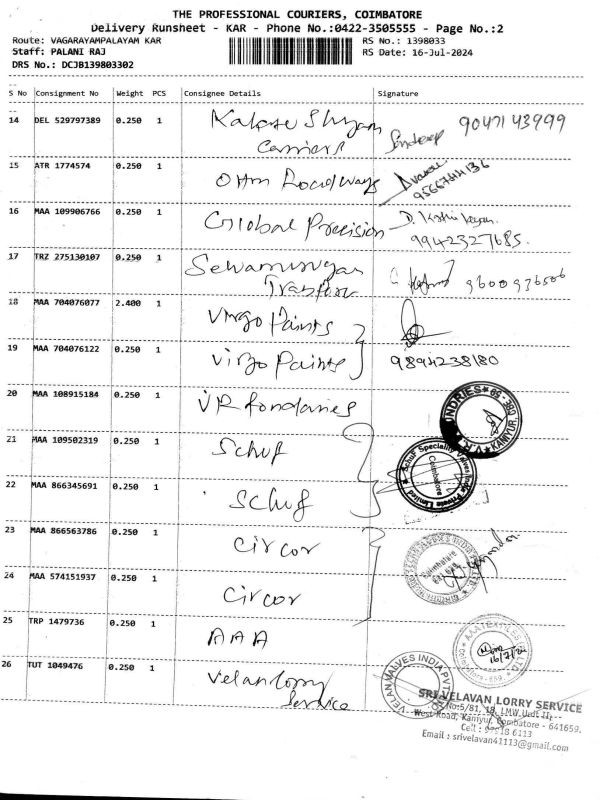 THE PROFESSIONAL COURIERS, COIMBATORE
Delivery Runsheet - KAR - Phone No.:0422-3505555 - Page No.:2
Route: VAGARAYAMPALAYAM KAR
RS No.: 1398033
Staff: PALANI RAJ
RS Date: 16-Jul-2024
DRS No.: DCJB139803302
S No Consignment No Weight PCS Consignee Details Signature
14 DEL 529797389 0.250 1 Shyam 9047143999
Carriers
15 ATR 1774574 0.250 1 Ohm Roadways
9566744136
16 MAA 109906766 0.250 1 Global Precision
9942327685.
17 TRZ 275130107 0.250 1 9600936506
18 MAA 704076077 2.400 1 Virgo Paints
19 MAA 704076122 0.250 1 Virgo Paints 9894238180
20 MAA 108915184 0.250 1 VR fondaries
21 MAA 109502319 0.250 1 Schuf
22 MAA 866345691 0.250 1 Schuf
SchuF Speciality Valves India Private Limited
Coimbatore
23 MAA 866563786 0.250 1 Circor
Coimbatore
24 MAA 574151937 0.250 1 Circor
25 TRP 1479736 0.250 1 AAA
AAA TEXTILES
16/7/24
26 TUT 1049476 0.250 1 Velan lorry
Service
VELAN VALVES INDIA PVT
SRI VELAVAN LORRY SERVICE
No:5/81, 18, LMW Unit II,
West Road, Kaniyur, Coimbatore - 641659.
Cell : 97518 6113
Email : srivelavan41113@gmail.com